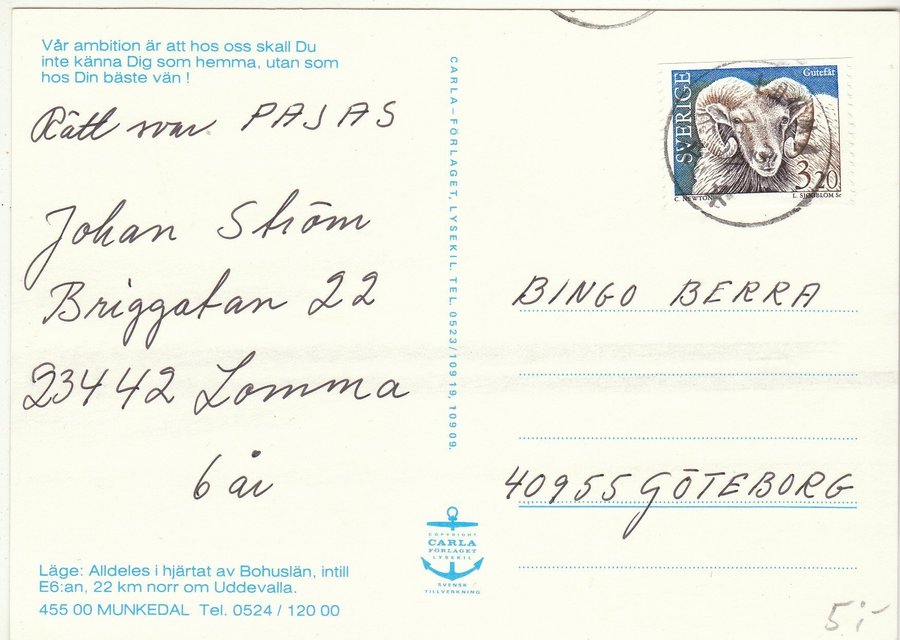 Vår ambition är att hos oss skall Du
inte känna Dig som hemma, utan som
hos Din bäste vän !
Rätt svar PAJAS
Johan Ström
Briggatan 22
23442 Lomma
6 år
Läge: Alldeles i hjärtat av Bohuslän, intill
E6:an, 22 km norr om Uddevalla.
455 00 MUNKEDAL Tel. 0524 / 120 00
CARLA-FÖRLAGET, LYSEKIL. TEL. 0523/109 19, 109 09.
COPYRIGHT
CARLA
FÖRLAGET
LYSEKIL
SVENSK
TILLVERKNING
SVERIGE
Gutefår
3.20
C. NEWTON
L. SJÖÖBLOM Sc
BINGO BERRA
40955 GÖTEBORG
5:-